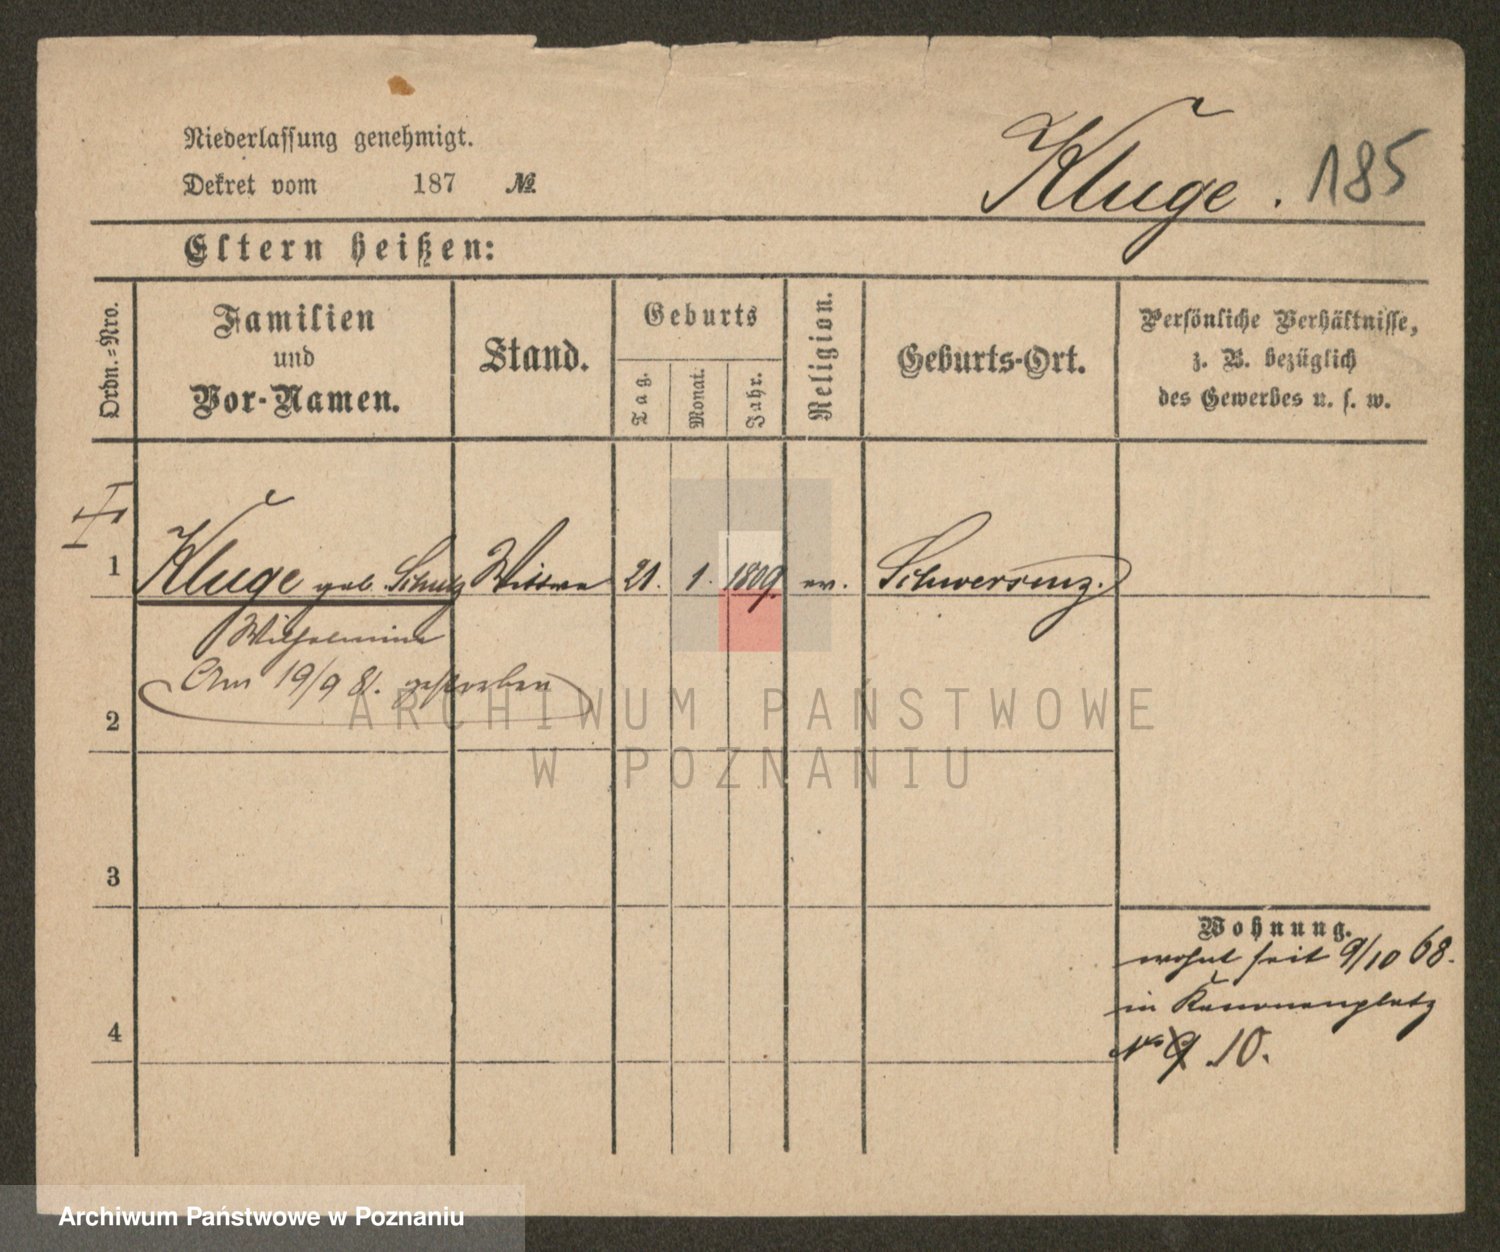 Niederlassung genehmigt.
Dekret vom 187 №
Kluge. 185
Eltern heißen:
Ordn.=Nro.
Familien
und
Vor-Namen.
Stand.
Geburts
Tag.
Monat.
Jahr.
Religion.
Geburts-Ort.
Persönliche Verhältnisse,
z. B. bezüglich
des Gewerbes u. s. w.
1 Kluge geb. Schulz Wittwe 21. 1. 1809. ev. Schwersenz.
Wilhelmine
Am 19/9 81. gestorben
2
3
4
Wohnung.
wohnt seit 9/10 68.
in Kanonenplatz
No 9 10.
ARCHIWUM PAŃSTWOWE
W POZNANIU
Archiwum Państwowe w Poznaniu